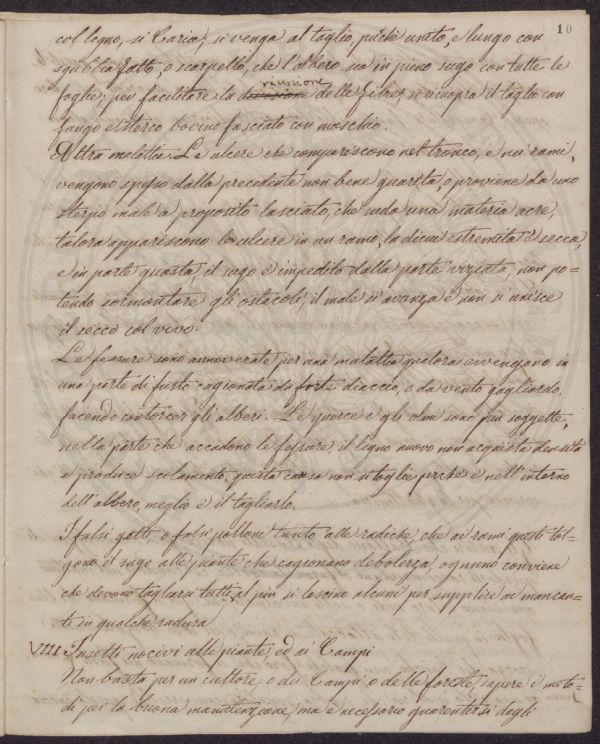 10
col legno, si Caria, si venga al taglio, pichè unito, e lungo con
sgubbia fatto, o scarpello, che l'albero sia in pieno sugo con tutte le
riunione
foglie; per facilitare la divisione delle fibre, si ricuopra il taglio con
fango e sterco bovino fasciato con moschio.
Altra malattia. Le ulcere che compariscono nel tronco, e nei rami,
vengono spesso dalla precedente non bene guarita, o proviene da uno
sterpo male a proposito lasciato, che suda una materia acre,
talora appariscono le ulcere in un ramo, la di cui estremità è secca,
e in parte guasta, il sugo è impedito dalla parte viziata, non po-
tendo sormontare gli ostacoli, il male s'avanza e non si unisce
il secco col vivo.
Le fessure sono annoverate per una malattia qualora avvengano in
una parte di fusto cagionata da forte diaccio, o da vento gagliardo,
facendo contorcer gli alberi. Le querce e gli olmi sono più soggette,
nella parte che accadono le fessure, il legno nuovo non acquista densità
e produce scolamento, questa causa non si toglie perchè è nell'interno
dell'albero, meglio è il tagliarlo.
I falsi getti, o falsi polloni tanto alle radiche, che ai rami questi tol-
gono il sugo alle piante che cagionano debolezza, ognuno conviene
che devono tagliarsi tutti, al più si lascino alcuni per supplire ai mancan-
ti in qualche radura
VIII Insetti nocivi alle piante, ed ai Campi
Non basta per un cultore o dei Campi o delle foreste, sapere i meto-
di per la buona manutenzione, ma è necessario guarentirsi dagli